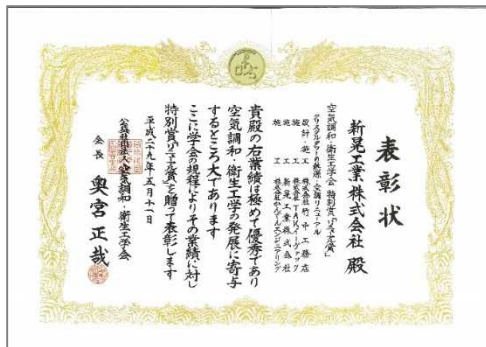 表彰状
新晃工業株式会社 殿
空気調和・衛生工学会 特別賞「リニューアル賞」
クリスタルタワーの熱源・空調リニューアル
設計・施工 株式会社 竹中工務店
施工 株式会社
施工 新晃工業株式会社
施工 株式会社
貴殿の右業績は極めて優秀であり
空気調和・衛生工学の発展に寄与
するところ大であります
ここに学会の規程によりその業績に対し
特別賞「リニューアル賞」を贈って表彰します
平成二十九年五月十一日
公益社団法人 空気調和・衛生工学会
会長 奥宮正哉